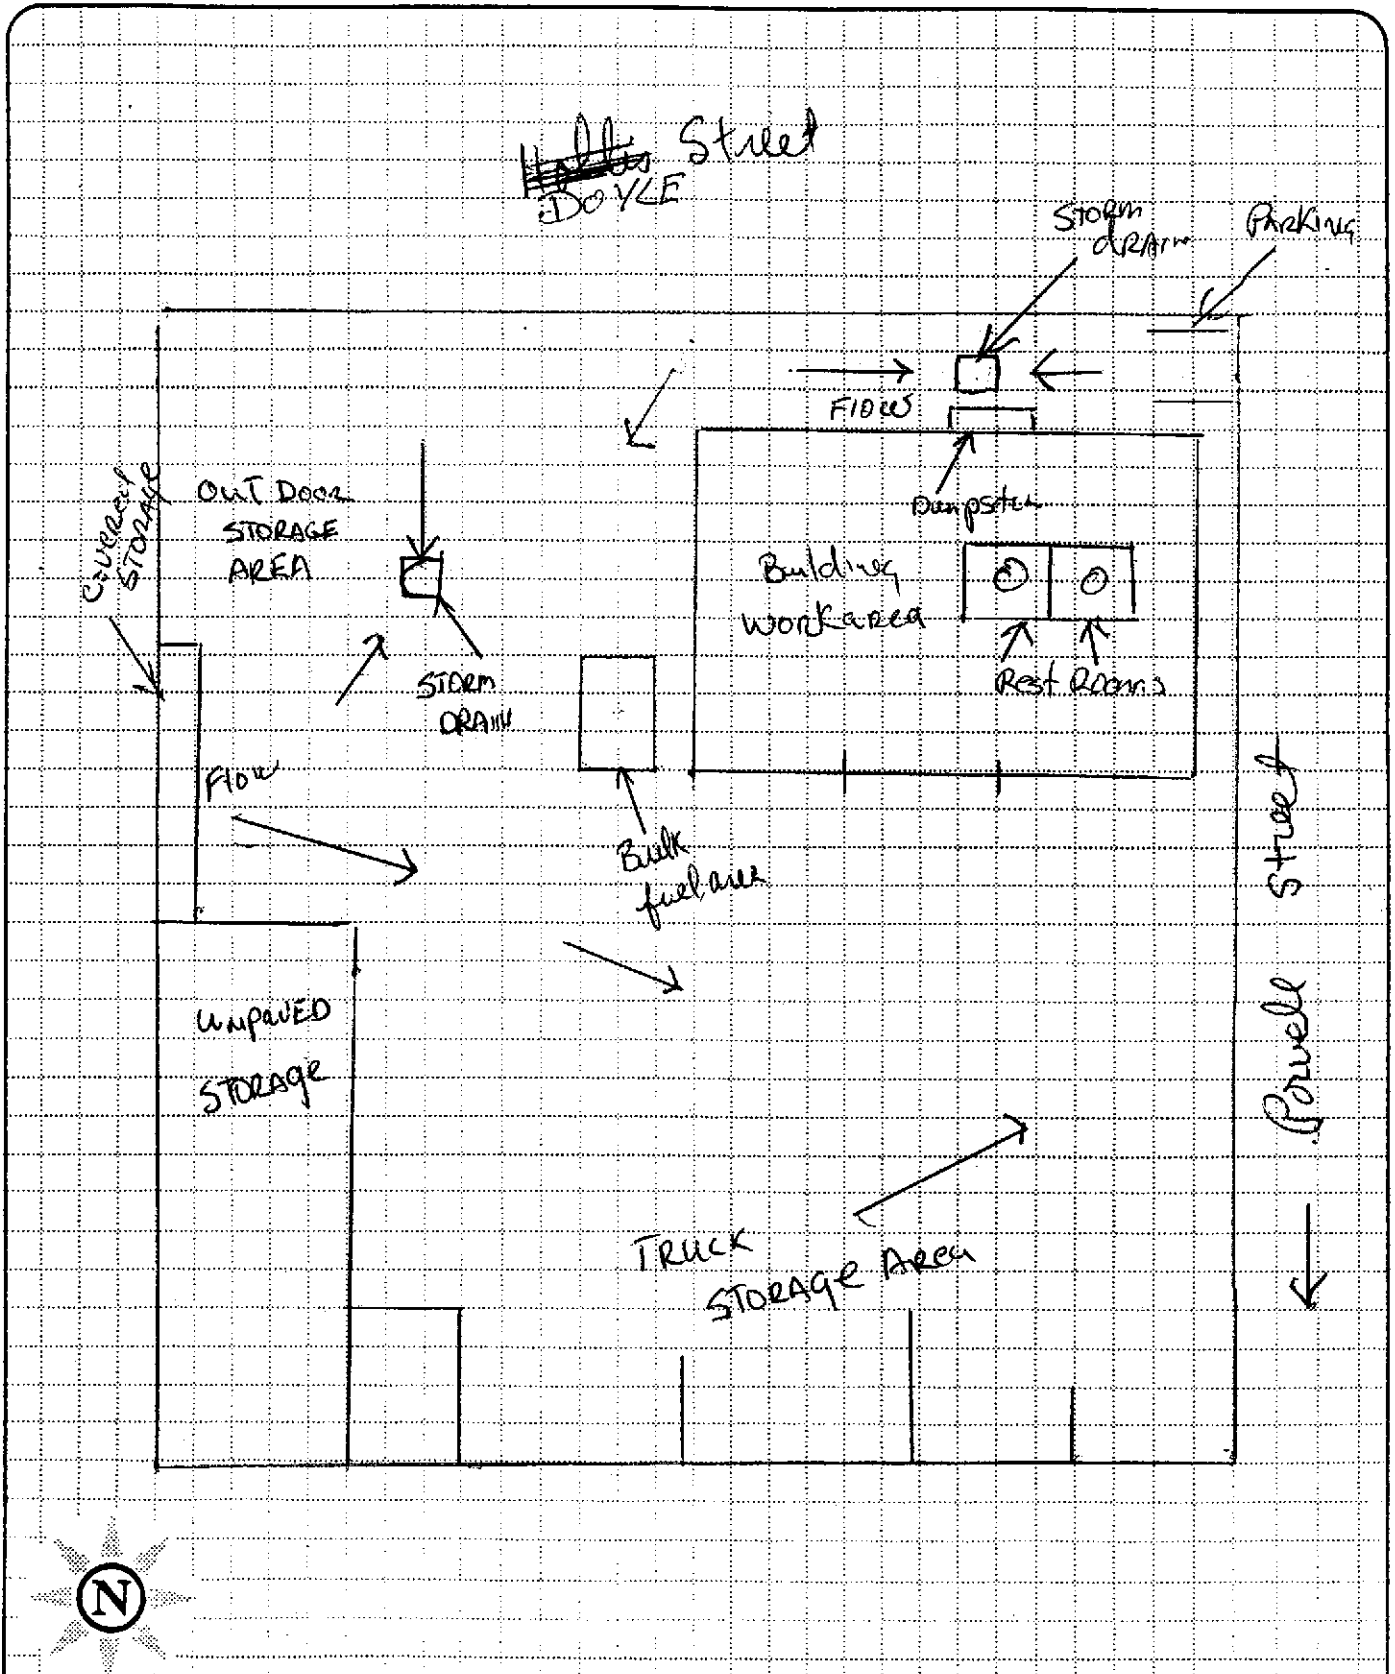 Hollis Street
DOYLE
STORM
dRAIN
PARKING
Flow
Covered
STORAGE
OUT DOOR
STORAGE
AREA
Dumpster
Building
workarea
Rest Rooms
STORM
DRAIN
Flow
Bulk
fuel area
Powell Street
UNPAVED
STORAGE
TRUCK
STORAGE AREA
N